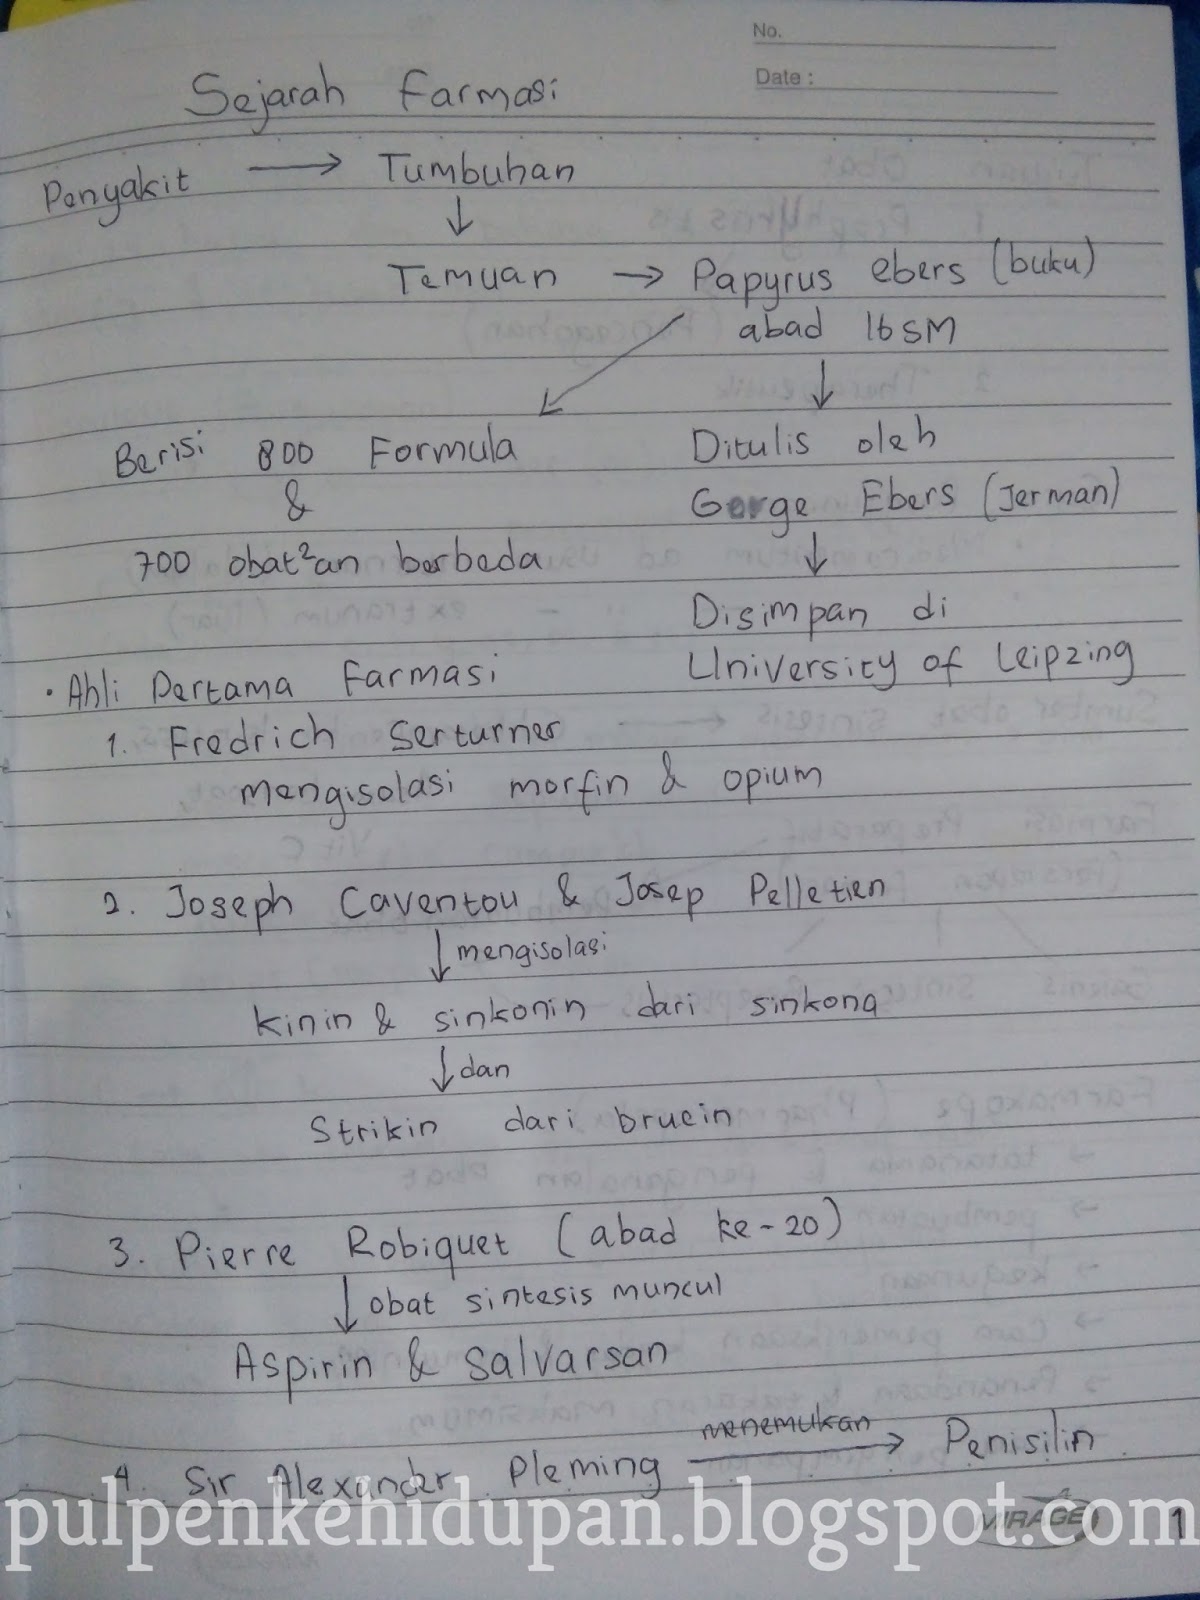 No.
Date :
Sejarah Farmasi
Penyakit → Tumbuhan
↓
Temuan → Papyrus ebers (buku)
abad 16 SM
↓
Berisi 800 Formula
&
700 obat²an berbeda
Ditulis oleh
George Ebers (Jerman)
↓
Disimpan di
University of Leipzing
• Ahli Pertama Farmasi
1. Fredrich Serturner
mengisolasi morfin & opium
2. Joseph Caventou & Josep Pelletien
↓ mengisolasi
Kinin & sinkonin dari sinkona
↓ dan
Strikin dari brucin
3. Pierre Robiquet (abad ke-20)
↓ obat sintesis muncul
Aspirin & Salvarsan
4. Sir Alexander Pleming menemukan → Penisilin
pulpenkehidupan.blogspot.com
MIRAGE
1